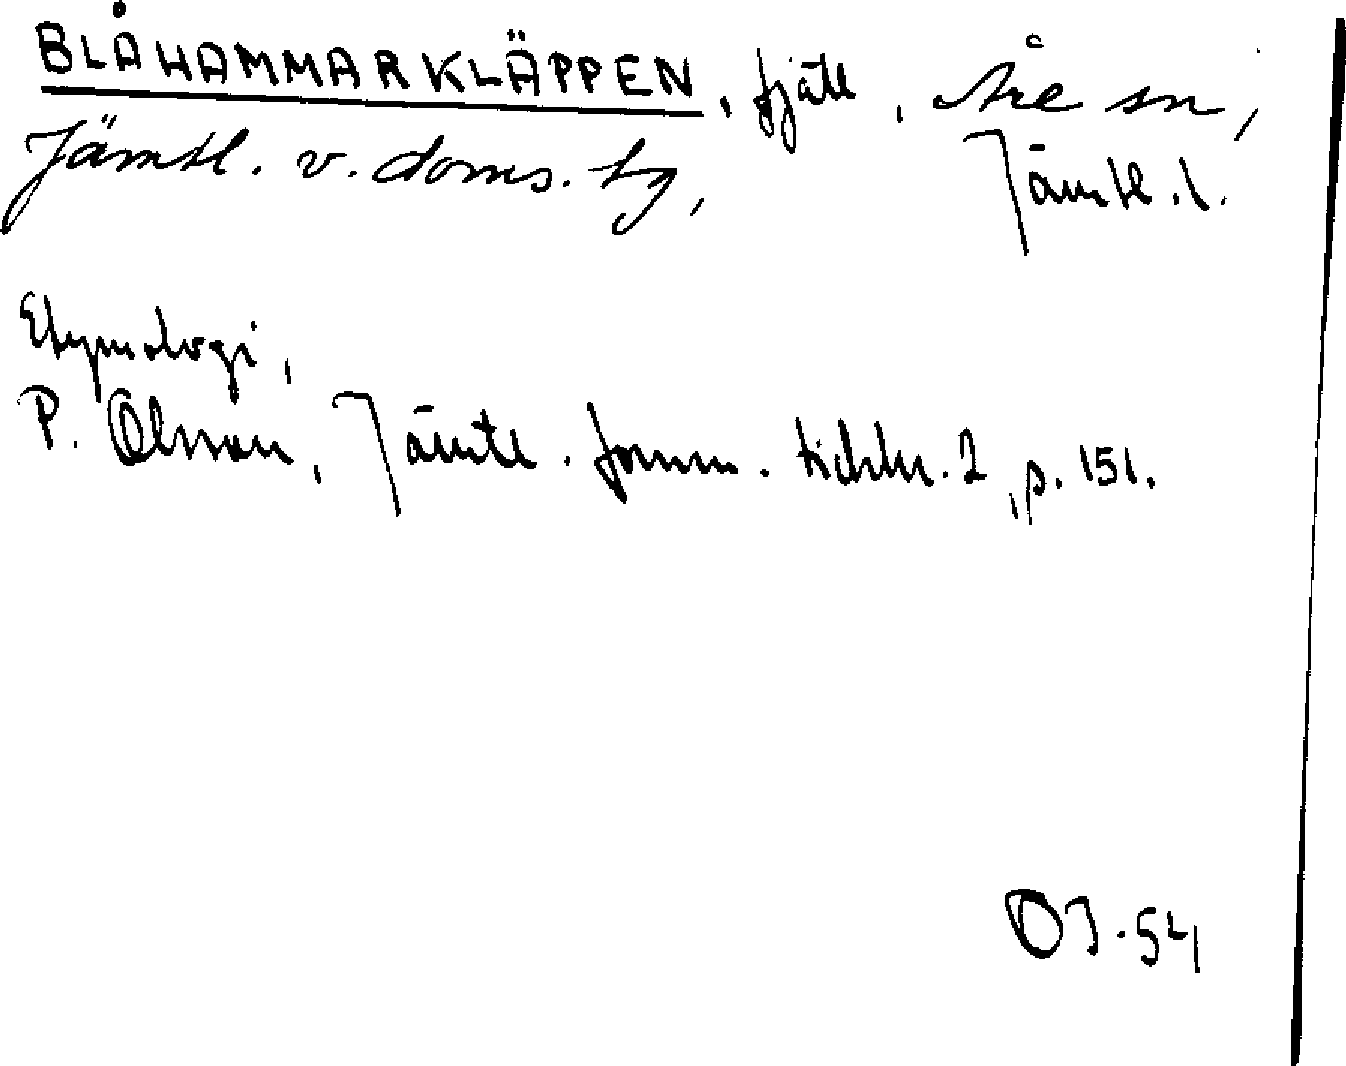 BLÅHAMMARKLÄPPEN, fjäll, Åre sn,
Jämtl. v. doms. tg, Jämtl. l.
Etymologi,
P. Olsson, Jämtl. fornm. tidskr. 2, p. 151.
OJ. 54